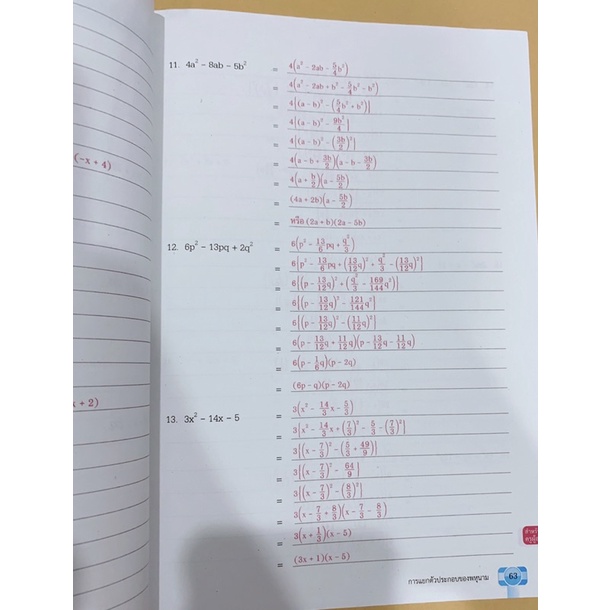 (-x + 4)
x + 2)
11. 4a² - 8ab - 5b² = 4(a² - 2ab - 5/4 b²)
= 4(a² - 2ab + b² - 5/4 b² - b²)
= 4[(a - b)² - (5/4 b² + b²)]
= 4[(a - b)² - 9b²/4]
= 4[(a - b)² - (3b/2)²]
= 4(a - b + 3b/2)(a - b - 3b/2)
= 4(a + b/2)(a - 5b/2)
= (4a + 2b)(a - 5b/2)
= หรือ (2a + b)(2a - 5b)
12. 6p² - 13pq + 2q² = 6(p² - 13/6 pq + q²/3)
= 6[p² - 13/6 pq + (13/12 q)² + q²/3 - (13/12 q)²]
= 6[(p - 13/12 q)² + (q²/3 - 169/144 q²)]
= 6[(p - 13/12 q)² - 121/144 q²]
= 6[(p - 13/12 q)² - (11/12 q)²]
= 6(p - 13/12 q + 11/12 q)(p - 13/12 q - 11/12 q)
= 6(p - 1/6 q)(p - 2q)
= (6p - q)(p - 2q)
13. 3x² - 14x - 5 = 3(x² - 14/3 x - 5/3)
= 3[x² - 14/3 x + (7/3)² - 5/3 - (7/3)²]
= 3[(x - 7/3)² - (5/3 + 49/9)]
= 3[(x - 7/3)² - 64/9]
= 3[(x - 7/3)² - (8/3)²]
= 3(x - 7/3 + 8/3)(x - 7/3 - 8/3)
= 3(x + 1/3)(x - 5)
= (3x + 1)(x - 5)
การแยกตัวประกอบของพหุนาม 63